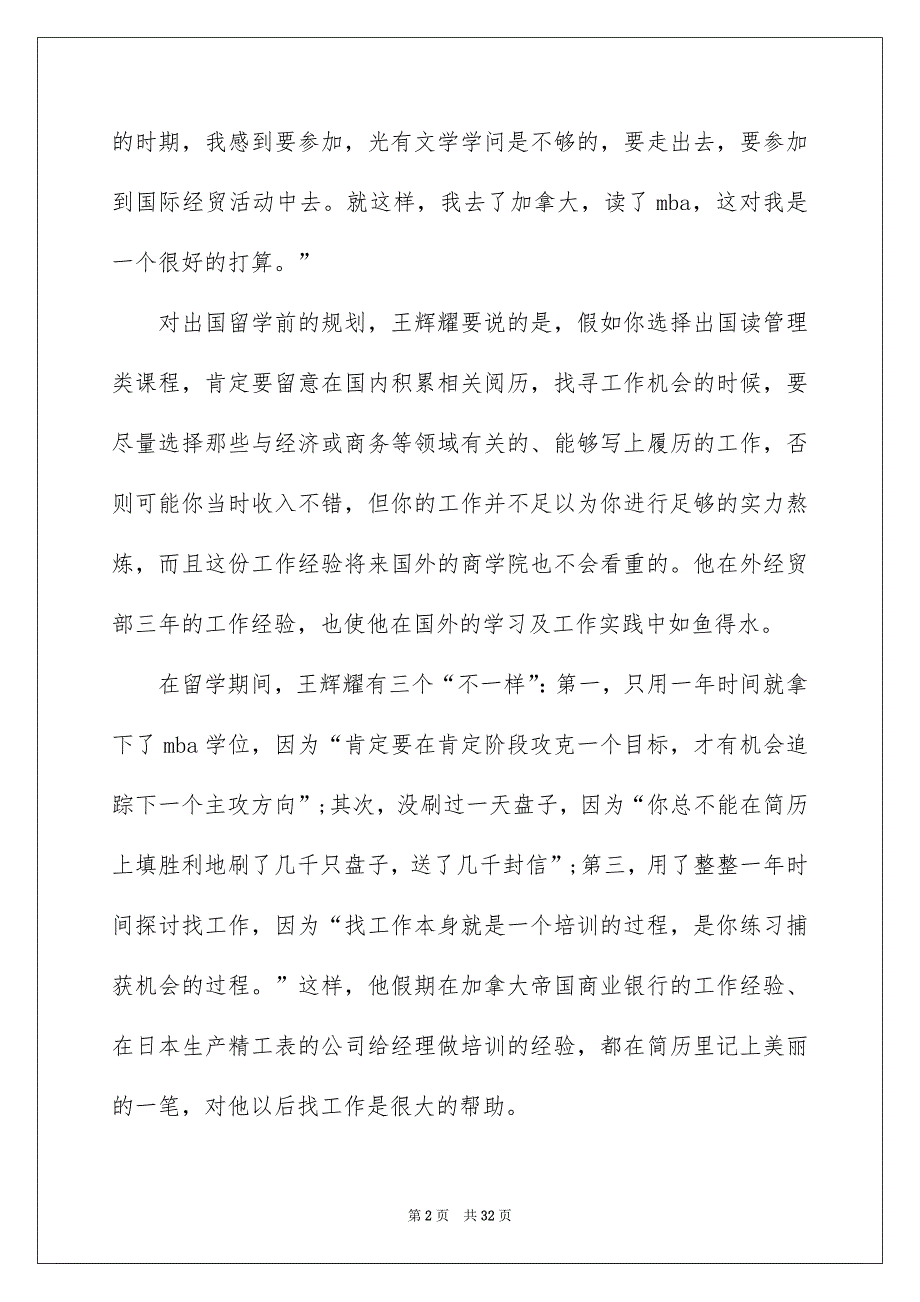 的时期，我感到要参加，光有文学学问是不够的，要走出去，要参加
到国际经贸活动中去。就这样，我去了加拿大，读了 mba，这对我是
一个很好的打算。”
对出国留学前的规划，王辉耀要说的是，假如你选择出国读管理
类课程，肯定要留意在国内积累相关阅历，找寻工作机会的时候，要
尽量选择那些与经济或商务等领域有关的、能够写上履历的工作，否
则可能你当时收入不错，但你的工作并不足以为你进行足够的实力熬
炼，而且这份工作经验将来国外的商学院也不会看重的。他在外经贸
部三年的工作经验，也使他在国外的学习及工作实践中如鱼得水。
在留学期间，王辉耀有三个“不一样”：第一，只用一年时间就拿
下了 mba 学位，因为“肯定要在肯定阶段攻克一个目标，才有机会追
踪下一个主攻方向”;其次，没刷过一天盘子，因为“你总不能在简历
上填胜利地刷了几千只盘子，送了几千封信”;第三，用了整整一年时
间探讨找工作，因为“找工作本身就是一个培训的过程，是你练习捕
获机会的过程。”这样，他假期在加拿大帝国商业银行的工作经验、
在日本生产精工表的公司给经理做培训的经验，都在简历里记上美丽
的一笔，对他以后找工作是很大的帮助。
第 2 页 共 32 页